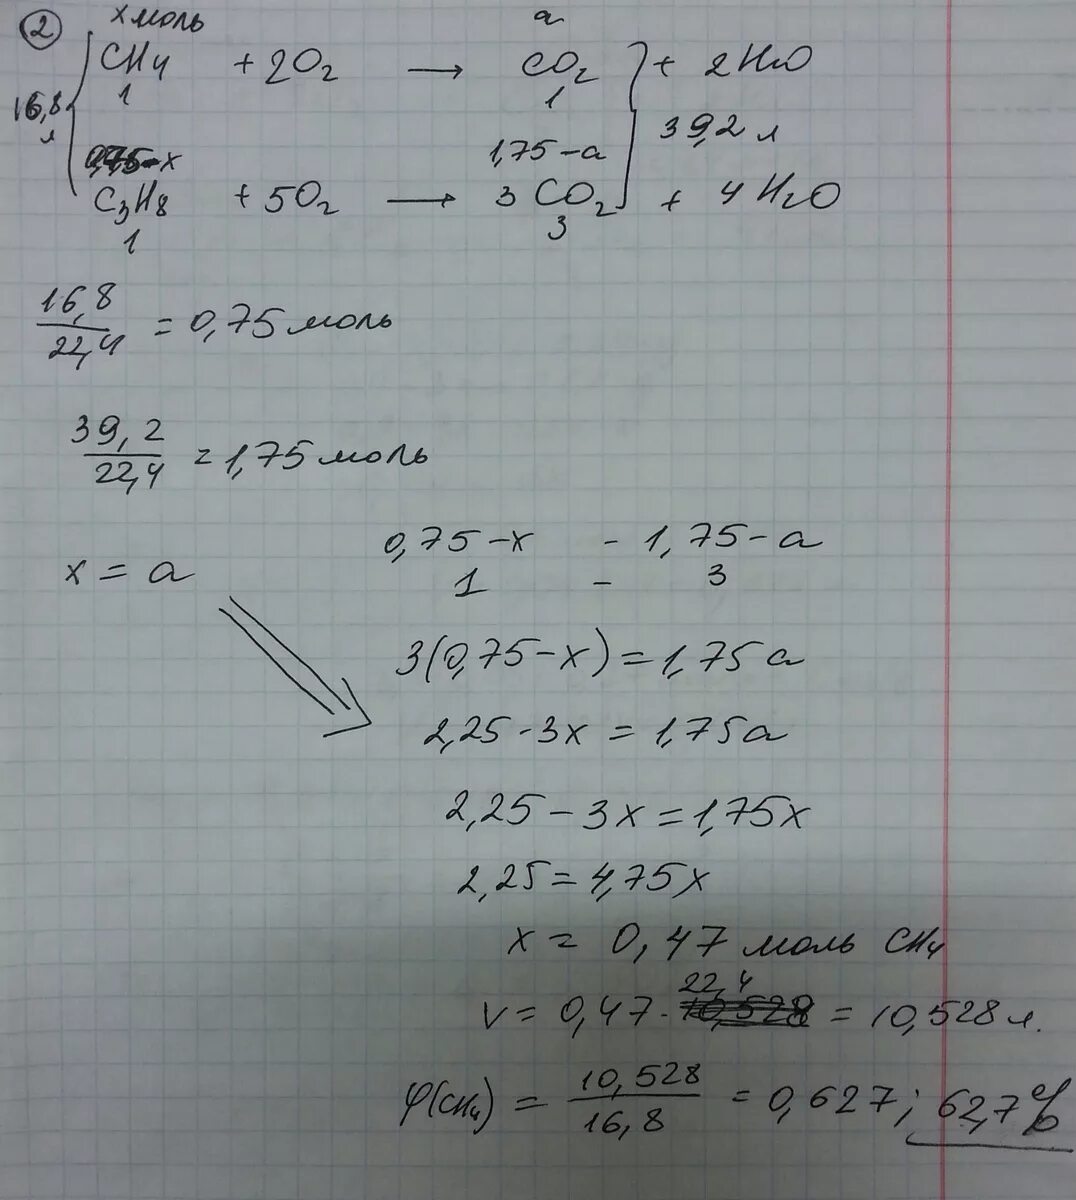 2 x моль a
CH4 + 2O2 → CO2 + 2H2O
1 1
16,8 л 39,2 л
0,75-x 1,75-a
C3H8 + 5O2 → 3CO2 + 4H2O
1 3
16,8/22,4 = 0,75 моль
39,2/22,4 = 1,75 моль
0,75-x - 1,75-a
x = a
1 - 3
3(0,75-x) = 1,75a
2,25-3x = 1,75a
2,25-3x = 1,75x
2,25 = 4,75x
x = 0,47 моль CH4
V = 0,47 · 22,4 = 10,528 л.
φ(CH4) = 10,528/16,8 = 0,627; 62,7%